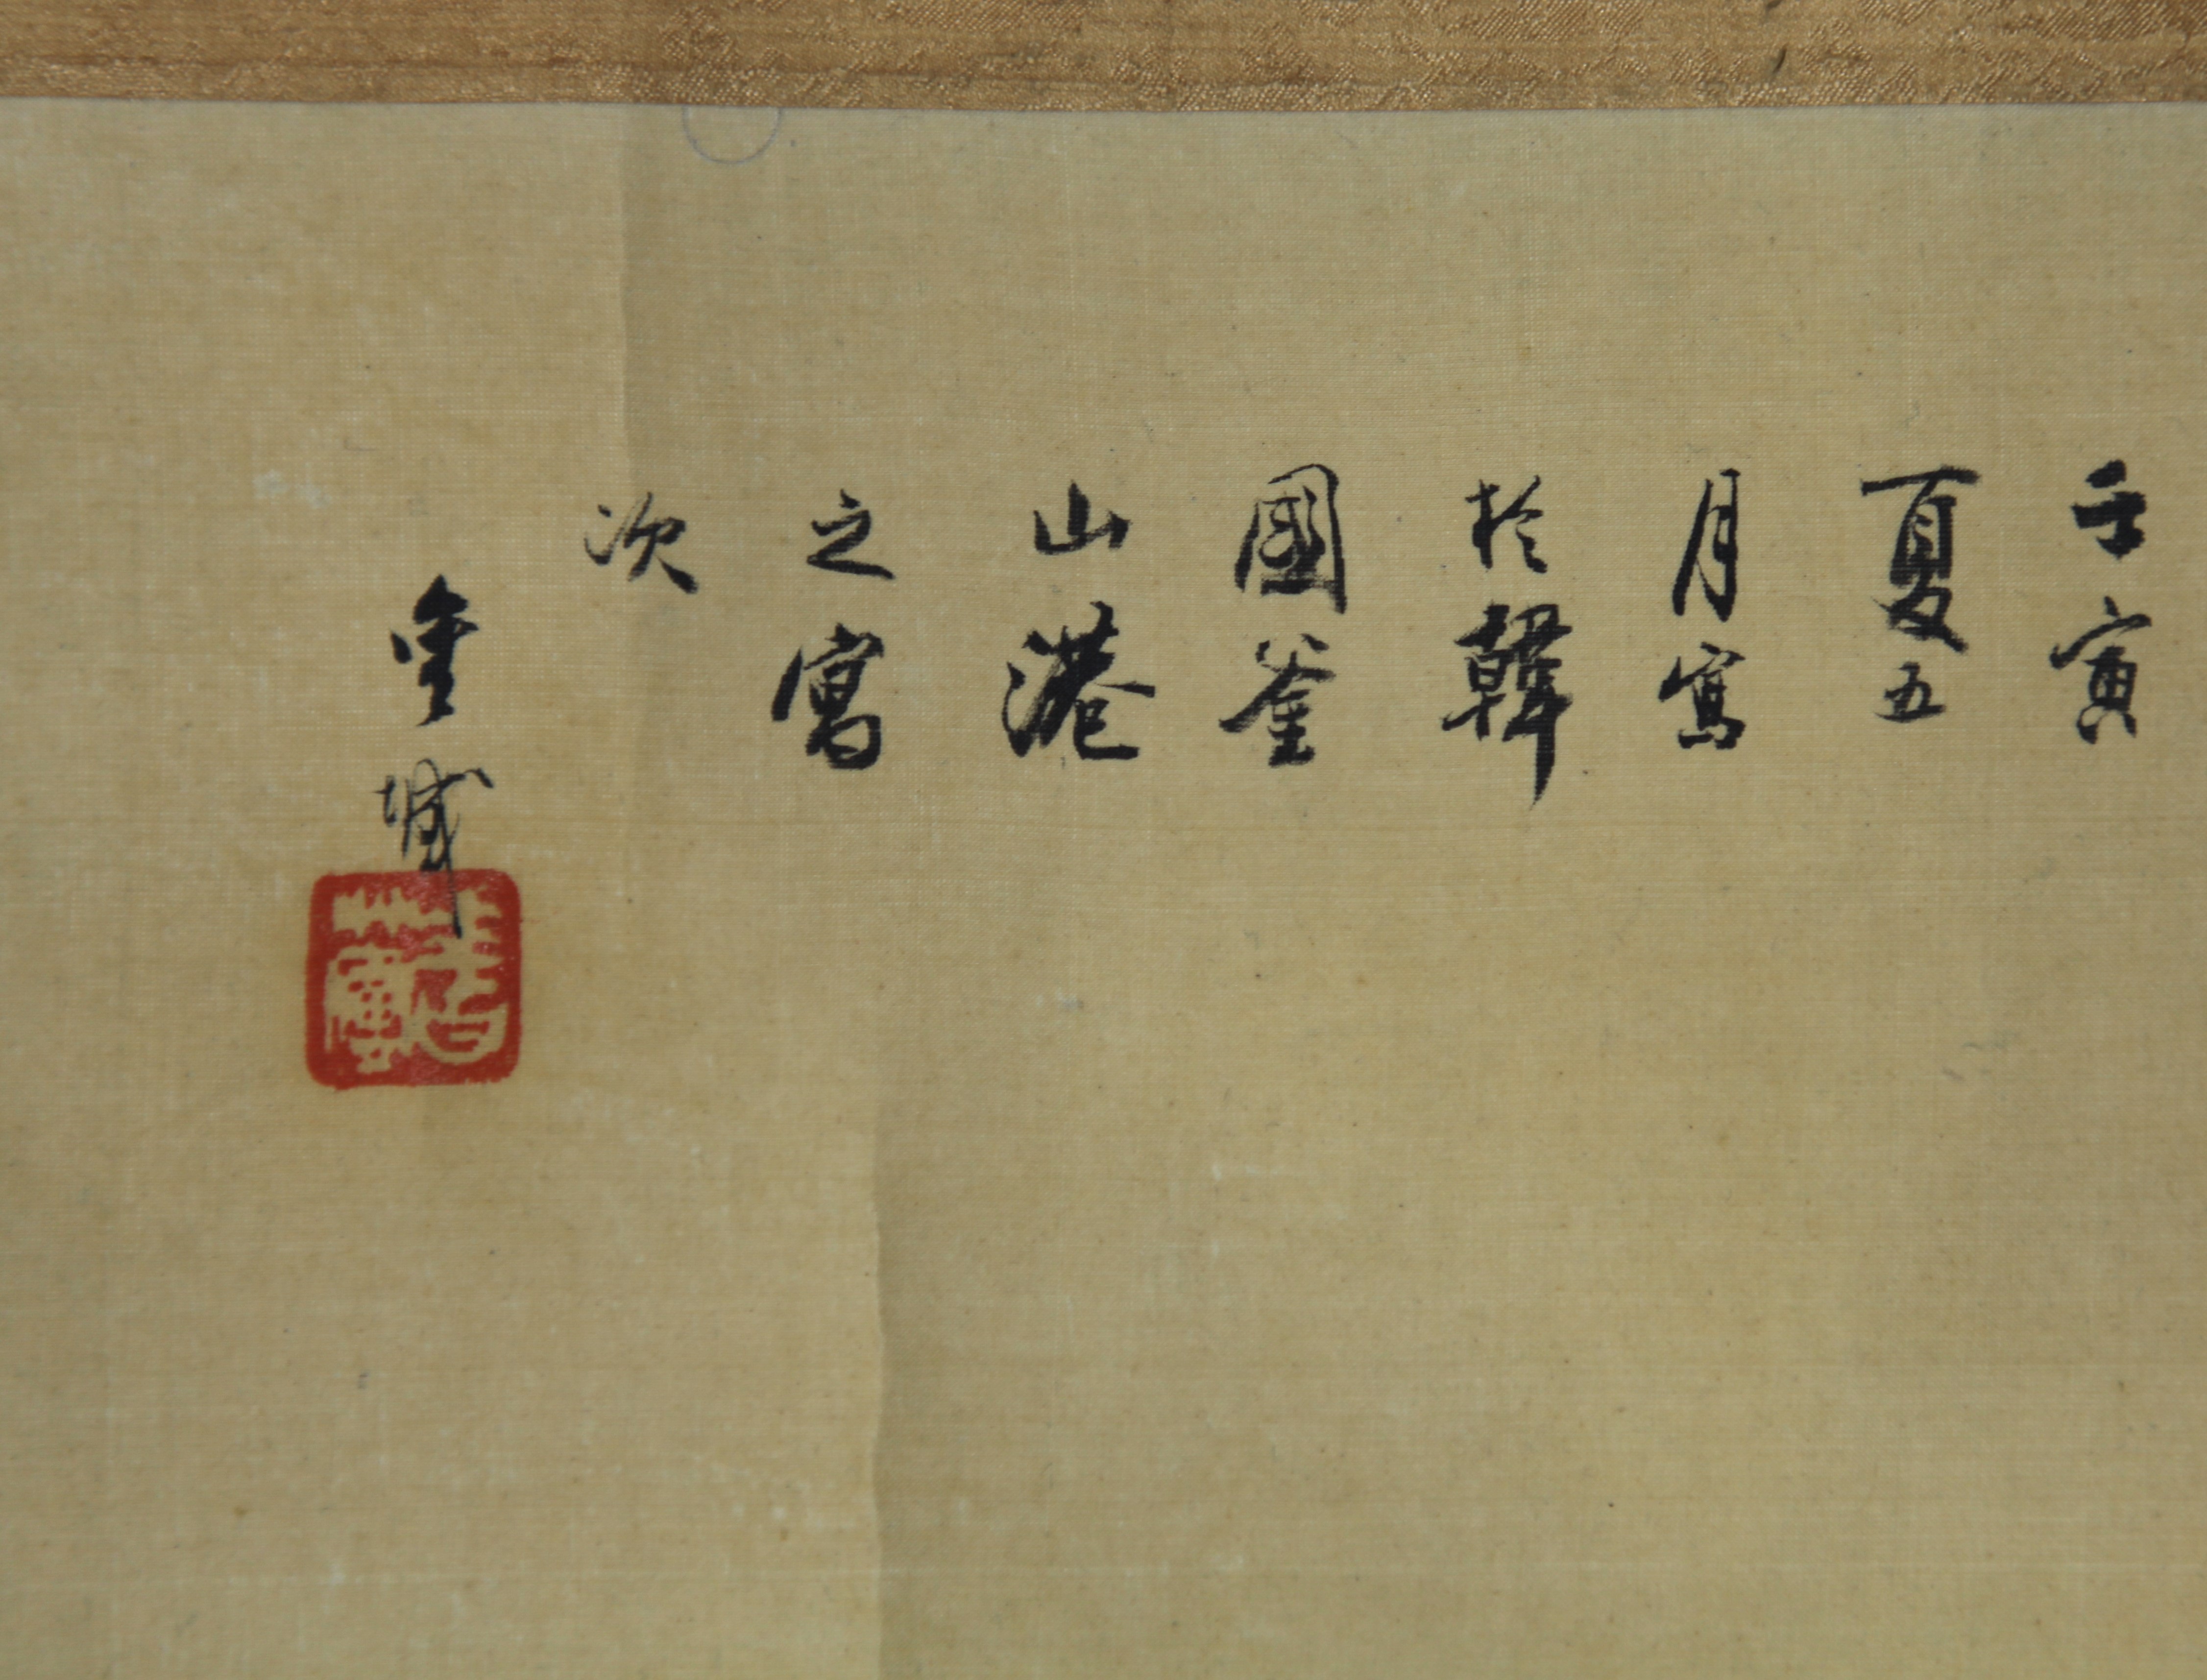 壬寅
夏五
月寫
於韓
國釜
山港
之寓
次
金城